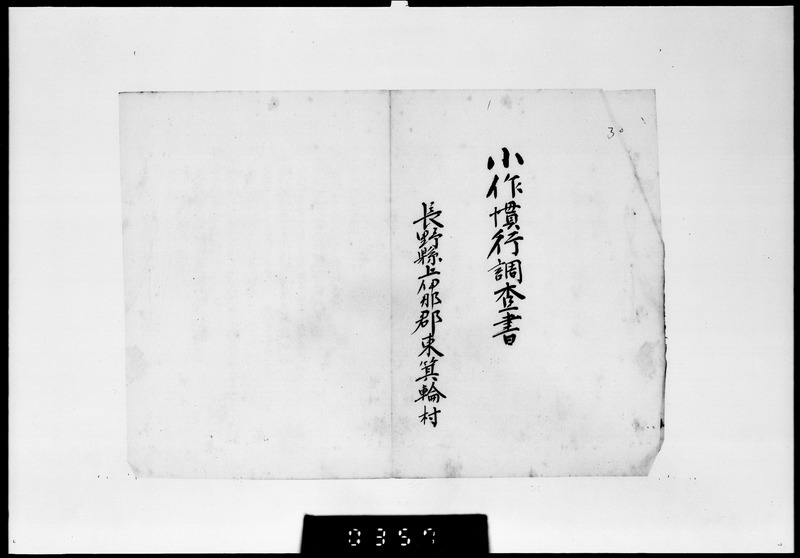 30
小作慣行調査書
長野縣上伊那郡東箕輪村
0357